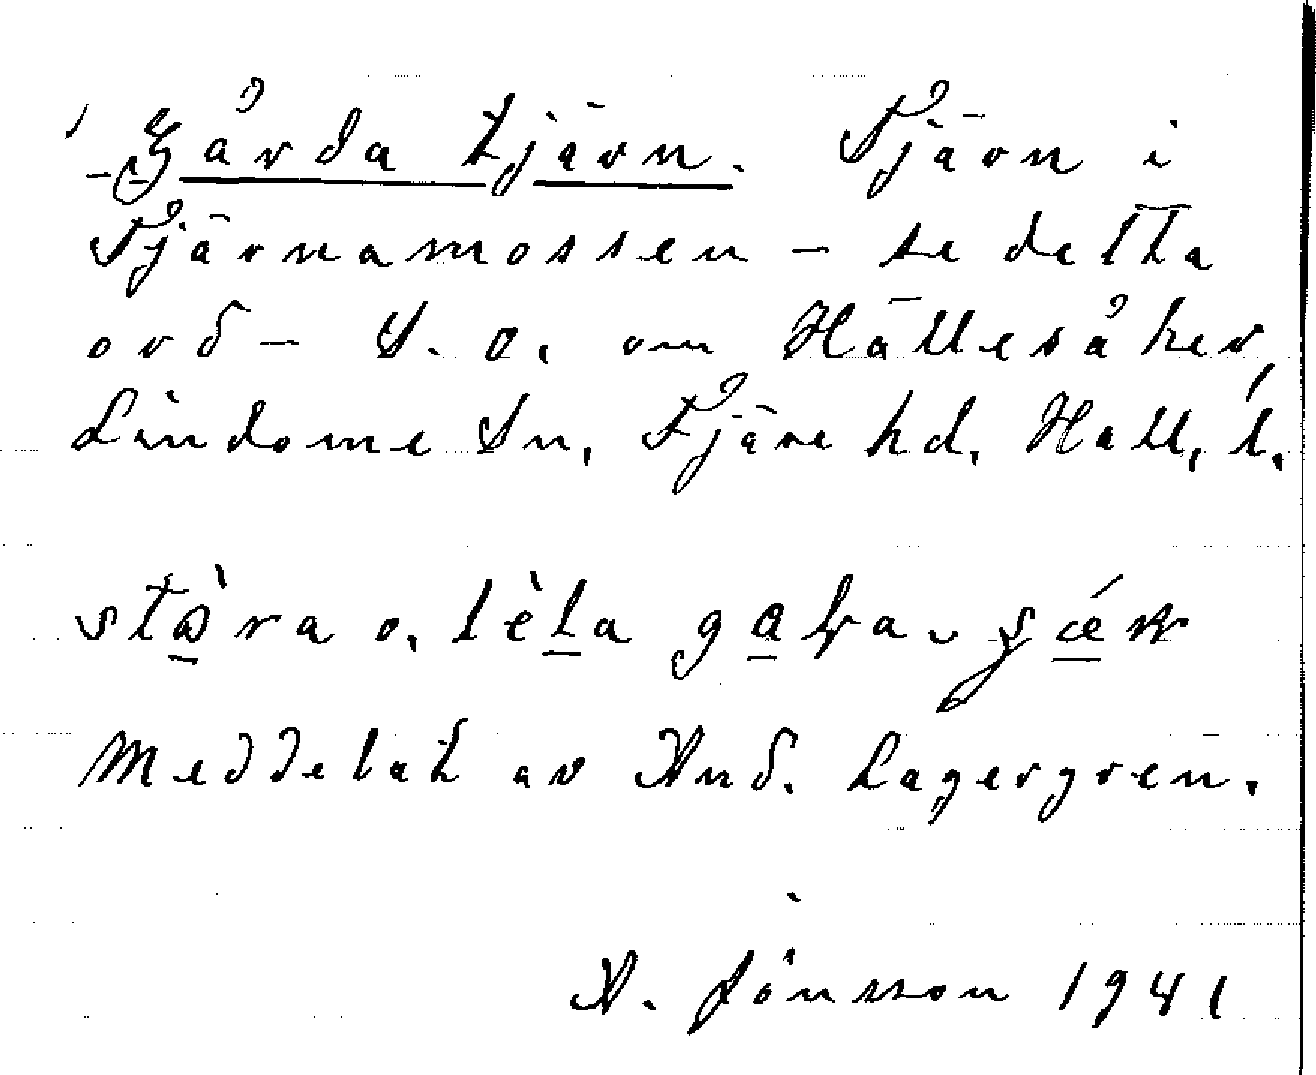 Gårda tjärn. Tjärn i
Tjärnamossen - se detta
ord - S. O. om Hällesåker,
Lindome Sn, Fjäre hd, Hall, l.
stɷ̀ra o, lèla
Meddelat av And. Lagergren.
A. Jönsson 1941